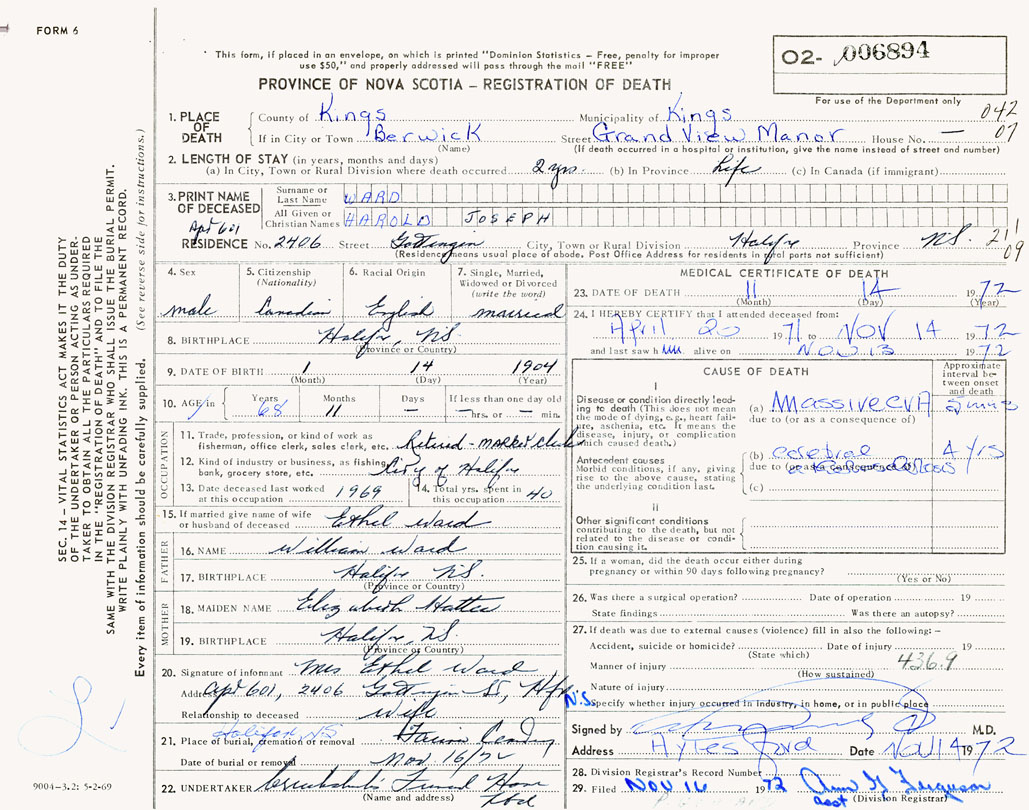 FORM 6
This form, if placed in an envelope, on which is printed "Dominion Statistics – Free, penalty for improper
use $50," and properly addressed will pass through the mail "FREE"
PROVINCE OF NOVA SCOTIA – REGISTRATION OF DEATH
O2- 006894
For use of the Department only
042
07
1. PLACE OF DEATH
County of Kings Municipality of Kings
If in City or Town Berwick Street Grand View Manor House No. —
(Name) (If death occurred in a hospital or institution, give the name instead of street and number)
2. LENGTH OF STAY (in years, months and days)
(a) In City, Town or Rural Division where death occurred 2 yrs. (b) In Province Life (c) In Canada (if immigrant)
3. PRINT NAME OF DECEASED
Surname or Last Name WARD
All Given or Christian Names HAROLD JOSEPH
Apt 601
RESIDENCE No. 2406 Street Gottingin City, Town or Rural Division Halifx Province N.S. 211
09
(Residence means usual place of abode. Post Office Address for residents in rural parts not sufficient)
4. Sex
male
5. Citizenship
(Nationality)
Canadian
6. Racial Origin
English
7. Single, Married,
Widowed or Divorced
(write the word)
married
8. BIRTHPLACE Halifx, NS
(Province or Country)
9. DATE OF BIRTH 1 14 1904
(Month) (Day) (Year)
10. AGE in Years 68 Months 11 Days – If less than one day old
– hrs. or – min.
OCCUPATION
11. Trade, profession, or kind of work as
fisherman, office clerk, sales clerk, etc. Retired - MARKET Clerk
12. Kind of industry or business, as fishing,
bank, grocery store, etc. City of Halifx
13. Date deceased last worked
at this occupation 1969
14. Total yrs. spent in
this occupation 40
15. If married give name of wife
or husband of deceased Ethel Ward
FATHER
16. NAME William Ward
17. BIRTHPLACE Halifx NS.
(Province or Country)
MOTHER
18. MAIDEN NAME Elizabeth Hatter
19. BIRTHPLACE Halifx, NS.
(Province or Country)
20. Signature of informant Mrs Ethel Ward
Address Apt 601, 2406 Gottingin St, Hfx N.S.
Relationship to deceased wife
Halifax, NS
21. Place of burial, cremation or removal
Date of burial or removal Nov. 16/72
22. UNDERTAKER Funeral Home
(Name and address) Ltd
MEDICAL CERTIFICATE OF DEATH
23. DATE OF DEATH 11 14 1972
(Month) (Day) (Year)
24. I HEREBY CERTIFY that I attended deceased from:
April 20 1971 to NOV 14 1972
and last saw him alive on NOV 13 1972
CAUSE OF DEATH
Approximate
interval be-
tween onset
and death
I
Disease or condition directly lead-
ing to death (This does not mean
the mode of dying, e.g., heart fail-
ure, asthenia, etc. It means the
disease, injury, or complication
which caused death.)
(a) Massive CVA
due to (or as a consequence of)
Antecedent causes
Morbid conditions, if any, giving
rise to the above cause, stating
the underlying condition last.
(b) cerebral 4 yrs
due to (or as a consequence of)
(c)
ii
Other significant conditions
contributing to the death, but not
related to the disease or condi-
tion causing it.
25. If a woman, did the death occur either during
pregnancy or within 90 days following pregnancy?
(Yes or No)
26. Was there a surgical operation? Date of operation 19
State findings Was there an autopsy?
27. If death was due to external causes (violence) fill in also the following: –
Accident, suicide or homicide? Date of injury 19
(State which)
Manner of injury 436.9
(How sustained)
Nature of injury
Specify whether injury occurred in industry, in home, or in public place
Signed by M.D.
Address Date NOV 14 1972
28. Division Registrar's Record Number
29. Filed NOV 16 1972 Ann G Ferguson
Asst (Division Registrar)
SEC. 14 – VITAL STATISTICS ACT MAKES IT THE DUTY
OF THE UNDERTAKER OR PERSON ACTING AS UNDER-
TAKER TO OBTAIN ALL THE PARTICULARS REQUIRED
IN THE "REGISTRATION OF DEATH" AND TO FILE THE
SAME WITH THE DIVISION REGISTRAR WHO SHALL ISSUE THE BURIAL PERMIT.
WRITE PLAINLY WITH UNFADING INK. THIS IS A PERMANENT RECORD.
Every item of information should be carefully supplied. (See reverse side for instructions.)
9004-3.2: 5-2-69